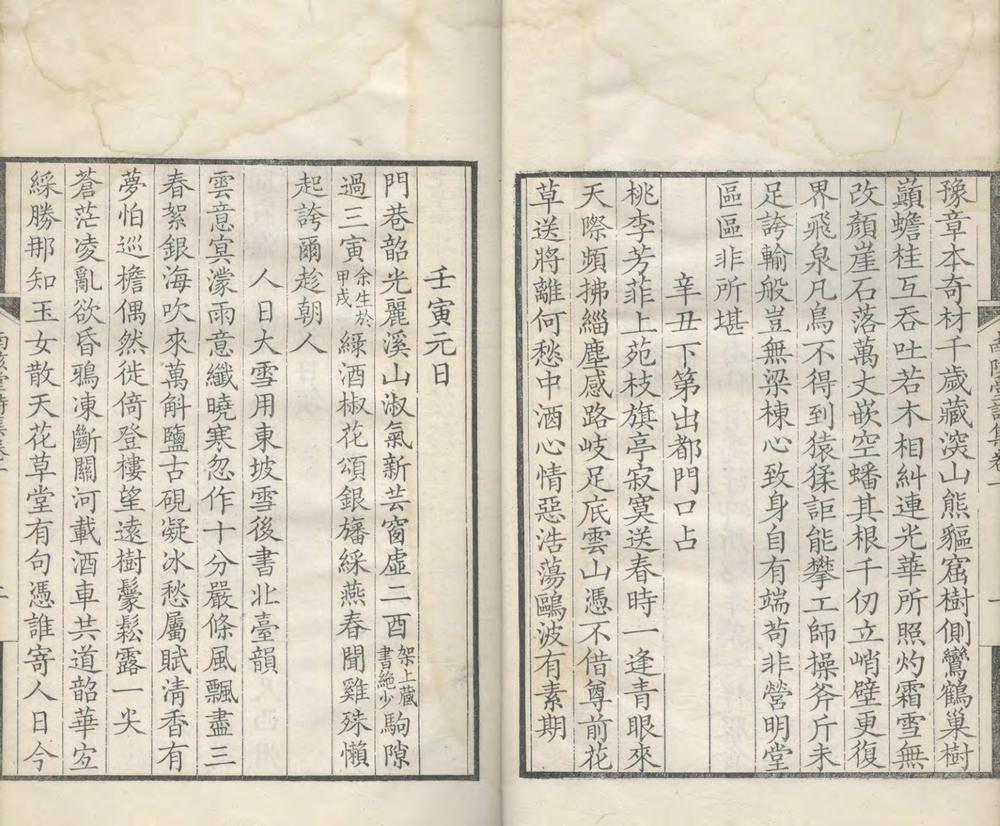 豫章本奇材千歲藏深山熊貙窟樹側鸞鶴巢樹
巔蟾桂互吞吐若木相糾連光華所照灼霜雪無
改顏崖石落萬丈嵌空蟠其根千仞立峭壁更復
界飛泉凡鳥不得到猿猱詎能攀工師操斧斤未
足誇輸般豈無梁棟心致身自有端苟非營明堂
區區非所堪
辛丑下第出都門口占
桃李芳菲上苑枝旗亭寂寞送春時一逢青眼來
天際頻拂緇塵感路岐足底雲山憑不借尊前花
草送將離何愁中酒心情惡浩蕩鷗波有素期
壬寅元日
門巷韶光麗溪山淑氣新芸窗虛二酉架上藏書絶少駒隙
過三寅余生於甲戌綠酒椒花頌銀旛綵燕春聞雞殊懶
起誇爾趁朝人
人日大雪用東坡雪後書北臺韻
雲意寞濛雨意纖曉寒忽作十分嚴條風飄盡三
春絮銀海吹來萬斛鹽古硯凝冰愁屬賦清香有
夢怕巡檐偶然徙倚登樓望遠樹鬖鬆露一尖
蒼茫凌亂欲昏鴉凍斷關河載酒車共道韶華宐
綵勝那知玉女散天花草堂有句憑誰寄人日今